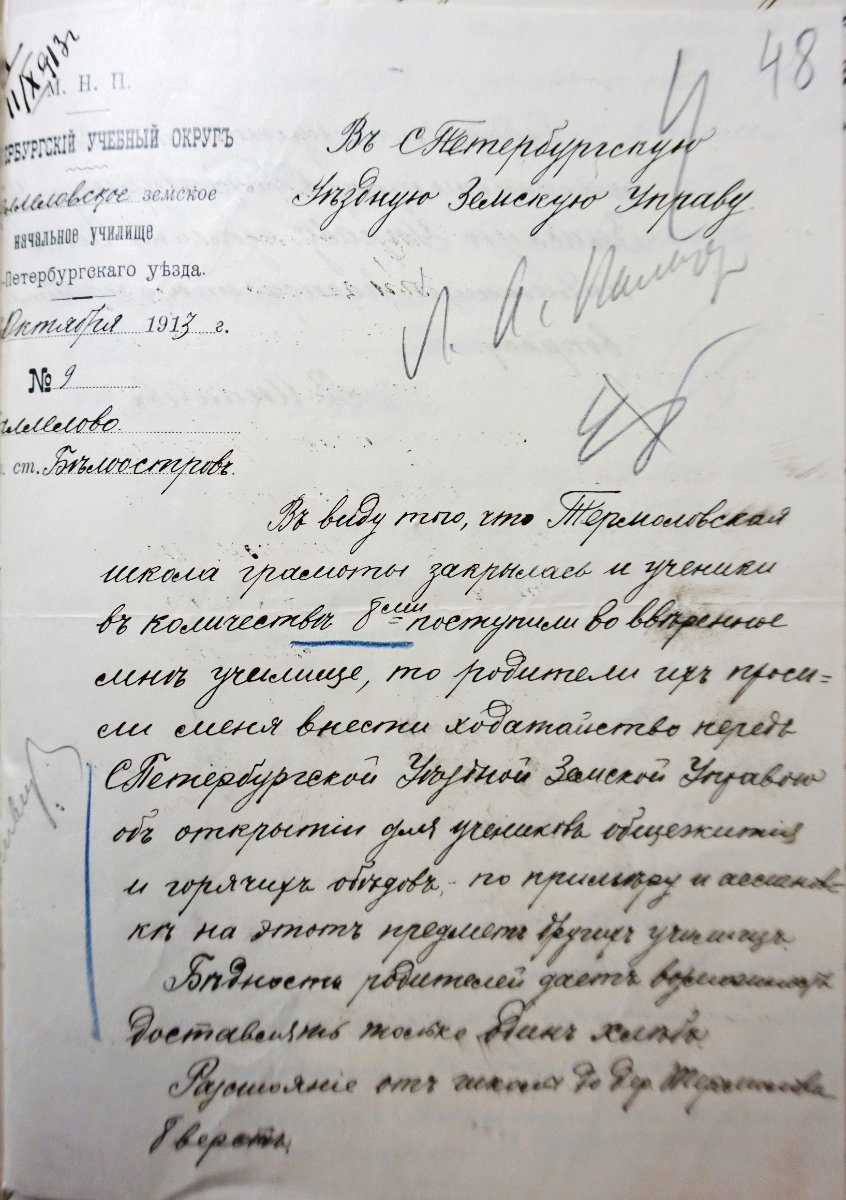 11/X 913 г
48
М. Н. П.
ЕРБУРГСКІЙ УЧЕБНЫЙ ОКРУГЪ
ллеловское земское
начальное училище
-Петербургскаго уѣзда.
Октября 1913 г.
№ 9
ллелово.
ст. Бѣлоостровъ.
Въ СПетербургскую
Уѣздную Земскую Управу
Въ виду того, что Термоловская
школа грамоты закрылась и ученики
въ количествѣ 8ми поступили во ввѣренное
мнѣ училище, то родители ихъ проси=
ли меня внести ходатайство передъ
СПетербургской Уѣздной Земской Управою
объ открытіи для учениковъ общежитія
и горячихъ обѣдовъ, по примѣру и ассигнов-
кѣ на этотъ предметъ другихъ училищъ.
Бѣдность родителей даетъ возможность
доставлять только одинъ хлѣбъ.
Разстояніе отъ школы до дер. Термолова
8 верстъ.